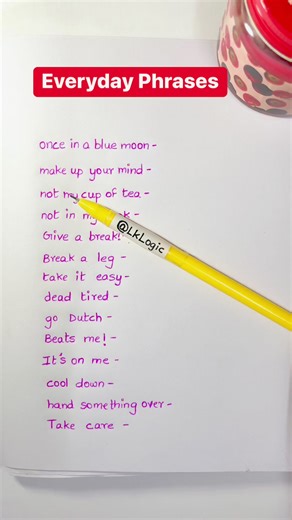 Everyday Phrases
once in a blue moon -
make up your mind -
not my cup of tea -
not in my -
Give a break! -
Break a leg -
take it easy -
dead tired -
go Dutch -
Beats me! -
It's on me -
cool down -
hand something over -
Take care -
@LkLogic